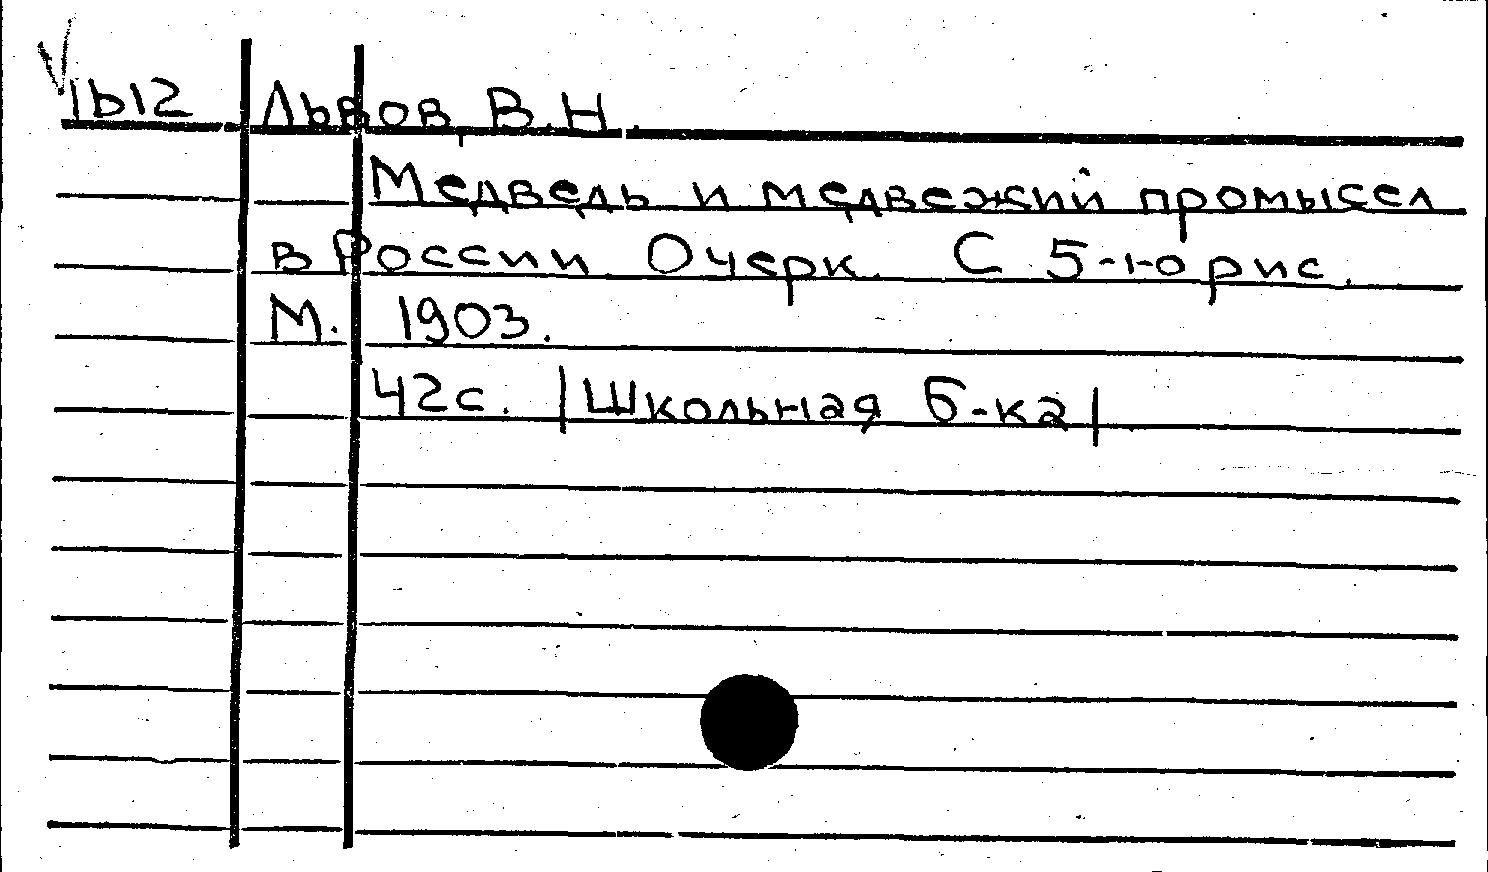 1612 Львов, В.Н.
Медведь и медвежий промысел
в России Очерк. С 5-ю рис.
М. 1903.
42с. |Школьная б-ка|